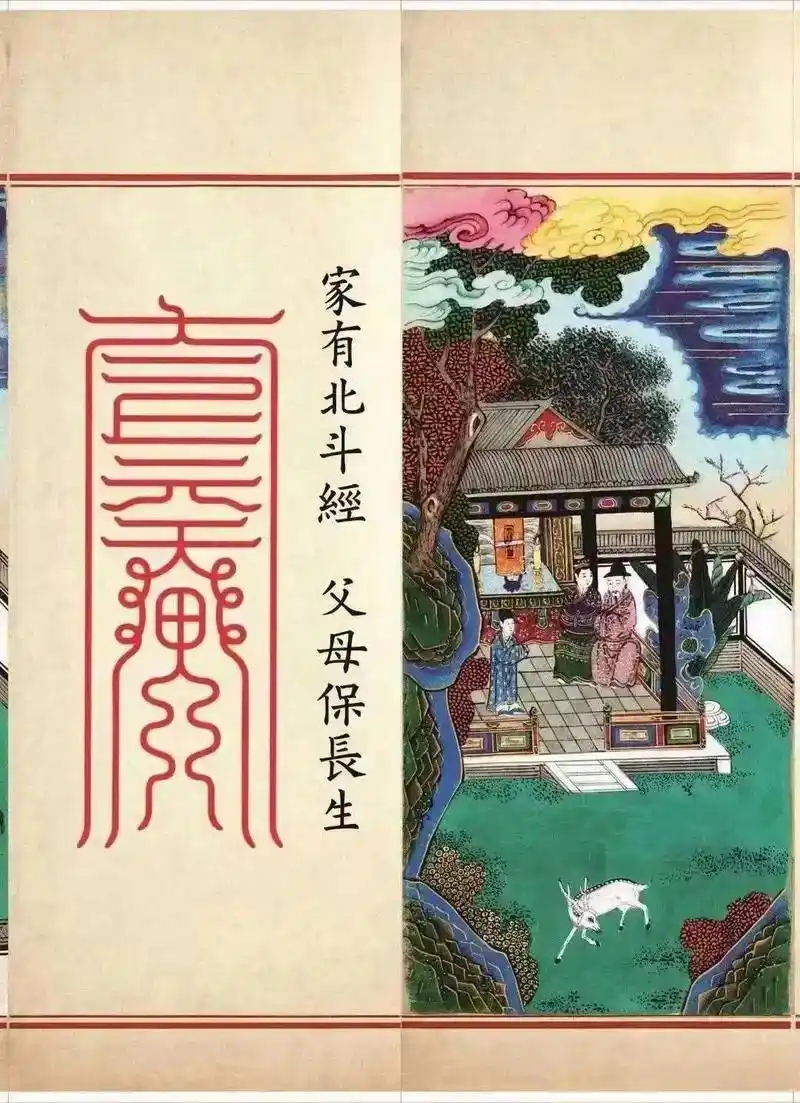 家有北斗經 父母保長生